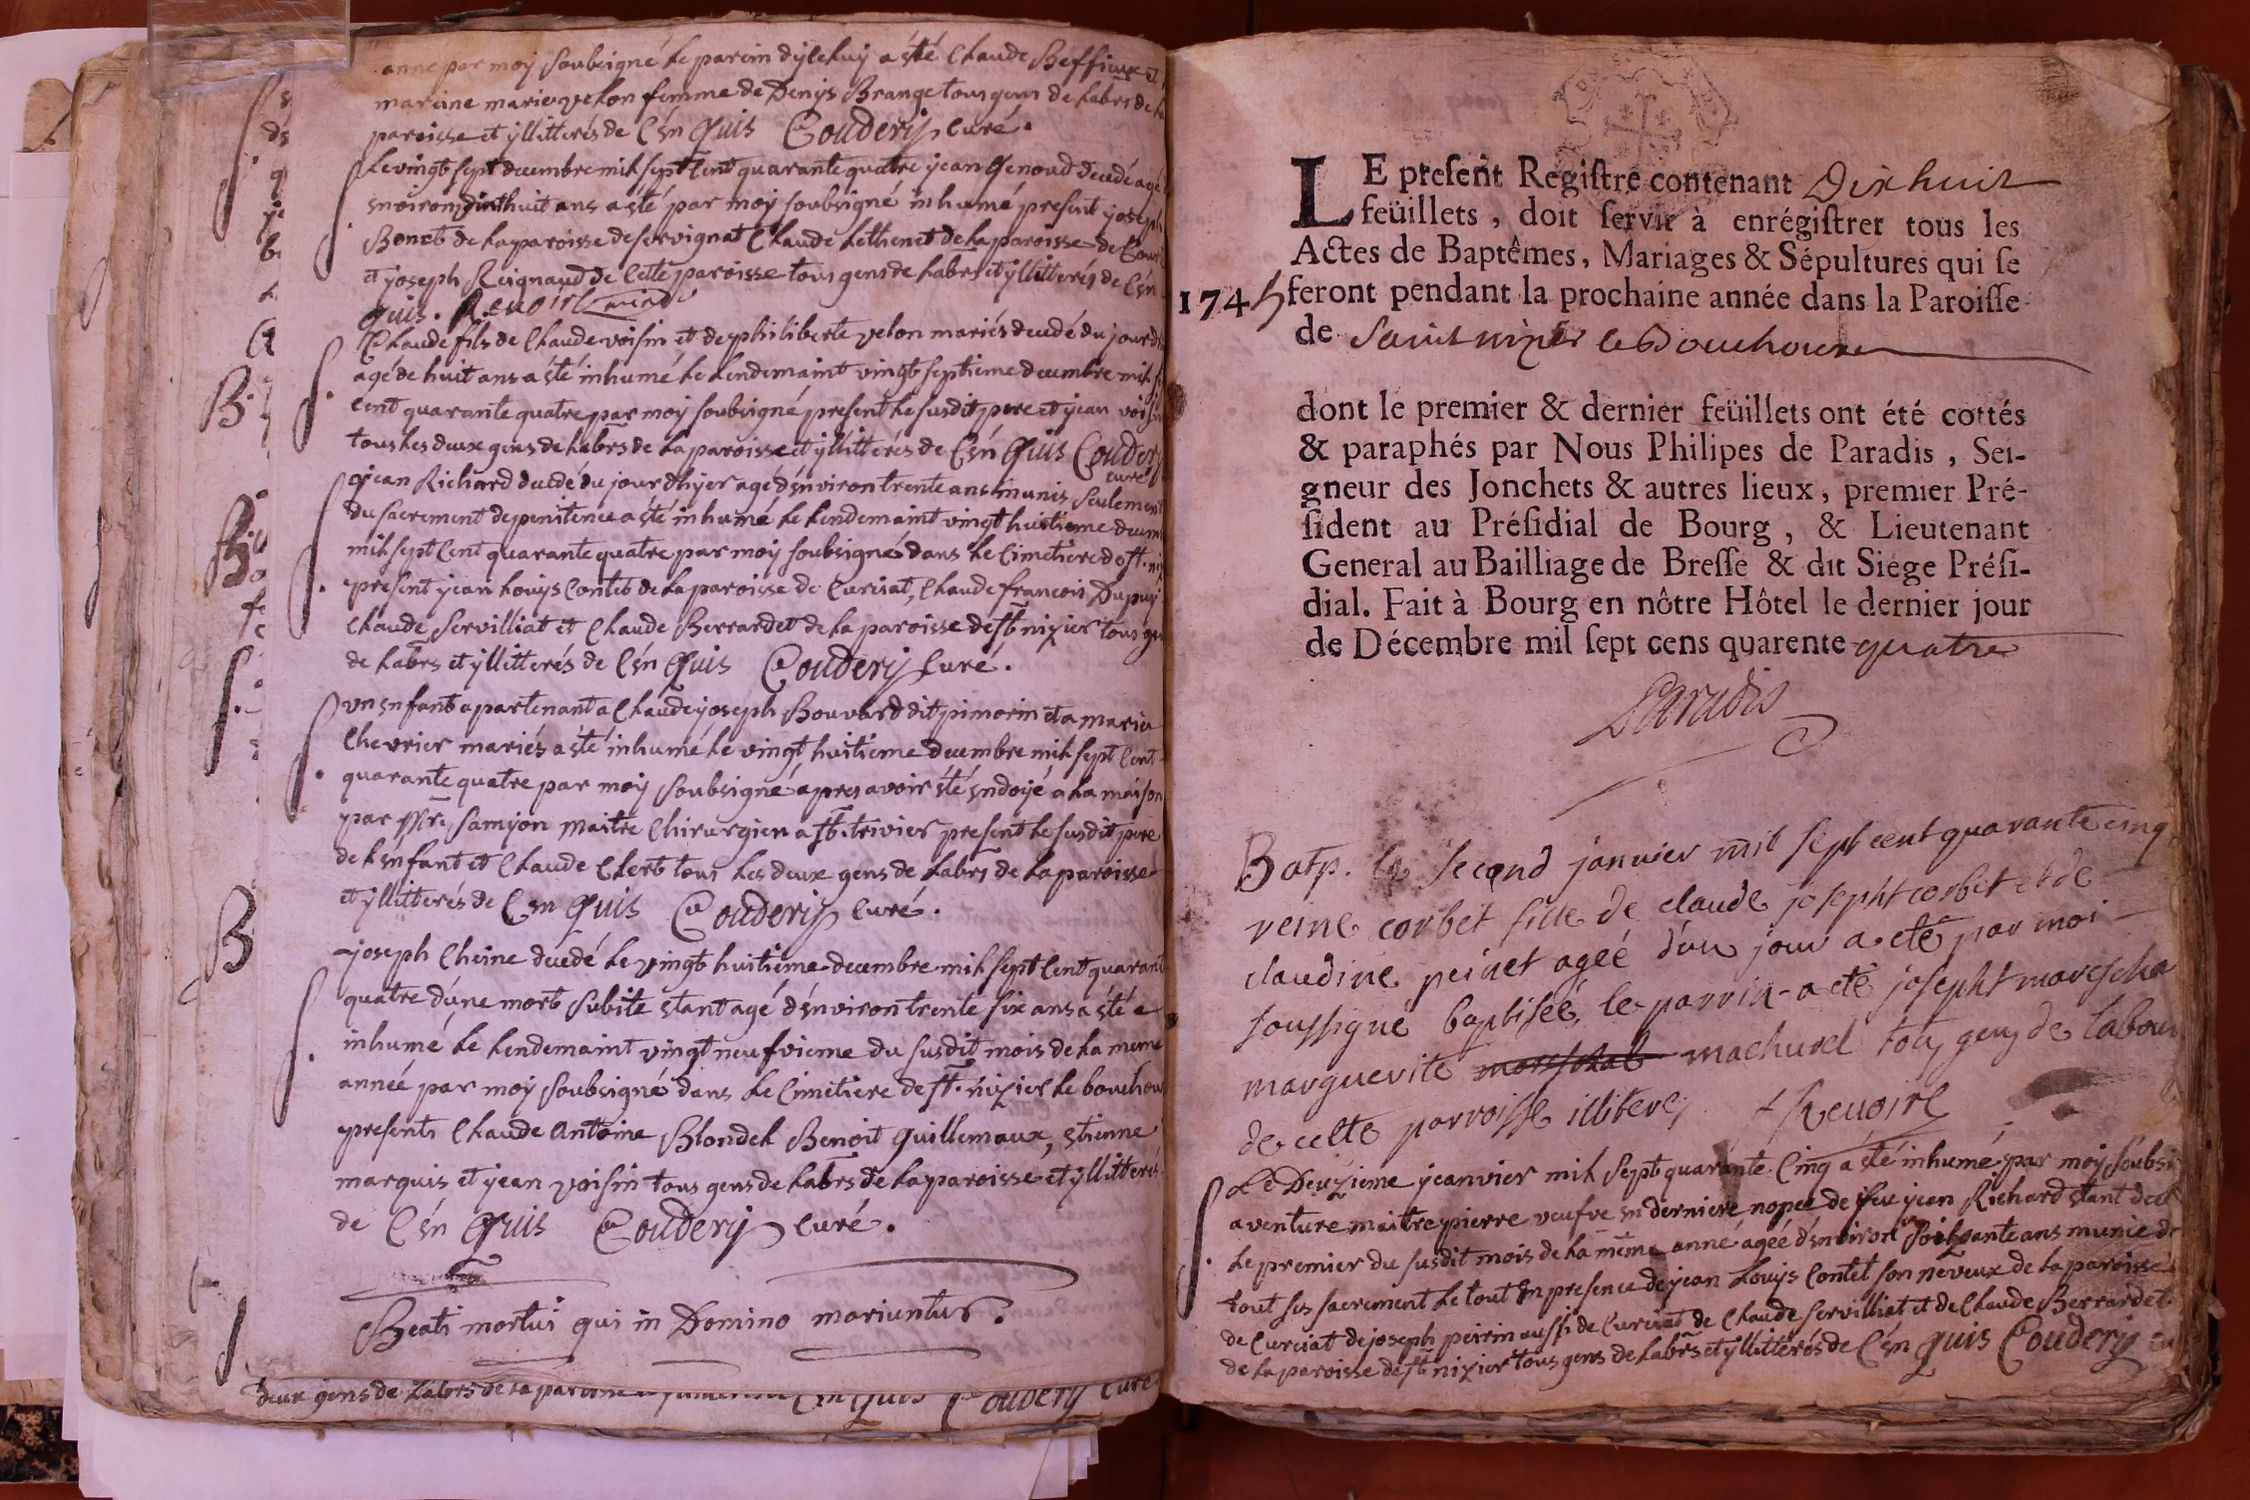 anne par moy soubsigné le parein d'ÿlehuÿ a été Claude Beffieux et
mareine marie velon femme de Denÿs Brange tous gens de labrs de la
paroisse et ÿllitterés de C én quis Couderÿ curé.
Le vingt sept decembre mil sept cent quarante quatre jean Genoud decedé agé
environ dixhuit ans a été par moÿ soubsigné inhumé present joseph
Bonet de la paroisse de servignat Claude Lethenet de la paroisse de
et joseph Reignaud de Cette paroisse tous gens de labrs et ÿllitterés de C én
quis. Revoire
Claude fils de Claude voisin et de philiberte velon mariés decedé du jour
agé de huit ans a été inhumé le lendemaint vingt septieme decembre mil
cent quarante quatre par moÿ soubsigné present le susdit pere et jean voisin
tous les deux gens de labrs de la paroisse et ÿllitterés de C én quis Couderÿ
curé
jean Richard decedé du jour dhÿer agé d'énviron trente ans munis seulement
du sacrement de penitence a été inhumé le lendemaint vingt huitieme
mil sept cent quarante quatre par moÿ soubsigné dans le Cimetiere de st.
present jean louÿs Contet de la paroisse de Curciat, Claude francois Dupuÿ
Claude Servilliat et Claude Berrardet de la paroisse de st nizier tous
de labrs et ÿllitterés de C én quis Couderÿ curé.
un enfant apartenant a Claude joseph Bouvard dit pimorin et a marie
Chevrier mariés a été inhumé le vingt huitieme decembre mil sept cent
quarante quatre par moÿ soubsigné aprés avoir été éndoÿé a la maison
par samjon maitre Chirurgien a st. trivier present le susdit pere
de l'énfant et Claude Clert tous les deux gens de labrs de la paroisse
et ÿllitterés de C en quis Couderÿ curé.
joseph Cheine decedé le vingt huitieme decembre mil sept cent quarante
quatre d'une mort subite etant agé d'énviron trente six ans a été
inhumé le lendemaint vingt neufvieme du susdit mois de la meme
année par moÿ soubsigné dans le Cimetiere de st. nizier le bouchoux
presents Claude Antoine Blondel Benoit Guillemaux, etienne
marquis et jean voisin tous gens de labrs de la paroisse et ÿllitterés
de C én quis Couderÿ curé.
Beati mortui qui in Domino moriuntur.
deux gens de labrs de la paroisse C én quis Couderÿ curé
LE present Registre contenant Dix huit
feüillets, doit servir à enrégistrer tous les
Actes de Baptêmes, Mariages & Sépultures qui se
1745 feront pendant la prochaine année dans la Paroisse
de Saint nizier le Bouchoux
dont le premier & dernier feüillets ont été cottés
& paraphés par Nous Philipes de Paradis, Sei-
gneur des Jonchets & autres lieux, premier Pré-
sident au Présidial de Bourg, & Lieutenant
General au Bailliage de Bresse & dit Siége Prési-
dial. Fait à Bourg en nôtre Hôtel le dernier jour
de Décembre mil sept cens quarente quatre
Paradis
Batp. le second janvier mil sept cent quarante cinq
reine corbet fille de claude josepht corbet et de
claudine peinet ageé d'un jour a eté par moi
soussigné baptiseé, le parrin a eté josepht mareschal
marguerite mareschal machurel tous gens de labour
de cette parroisse illiteres Revoire
Le Deuzieme jeanvier mil sept quarante Cinq a été inhumé par moÿ soubsi
aventure maitrepierre veufve en derniere nopce de feu jean Richard etant
le premier du susdit mois de la mème anné agéé d'énviron soixante ans munie de
tout ses sacrement le tout en presence de jean Louÿs Contet son neveux de la paroisse
de Curciat de joseph perrin aussi de Curciat de Claude servilliat et de Claude Berrardet
de la paroisse de st nizier tous gens de labrs et ÿllitterés de C én quis Couderÿ